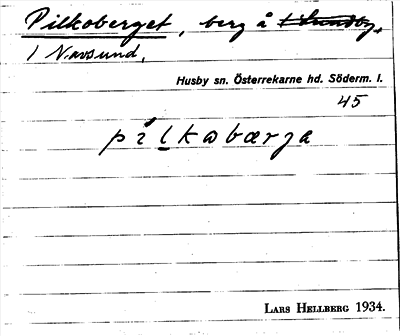 Pilkoberget, berg å
1 Navsund.
Husby sn. Österrekarne hd. Söderm. l.
45
LARS HELLBERG 1934.